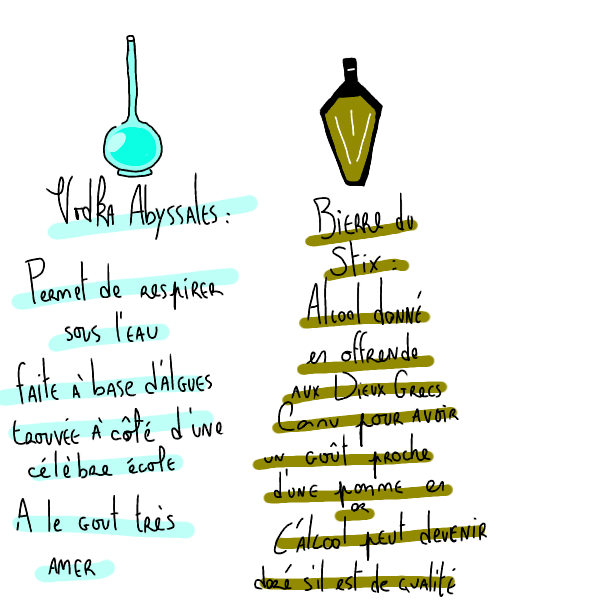 Vodka Abyssales :
Permet de respirer
sous l'eau
faite à base d'algues
trouvée à côté d'une
célèbre école
A le gout très
amer
Bierre du
Stix :
Alcool donné
en offrende
aux Dieux Grecs
Conu pour avoir
un goût proche
d'une pomme en
or
C'alcool peut devenir
doré s'il est de qualité